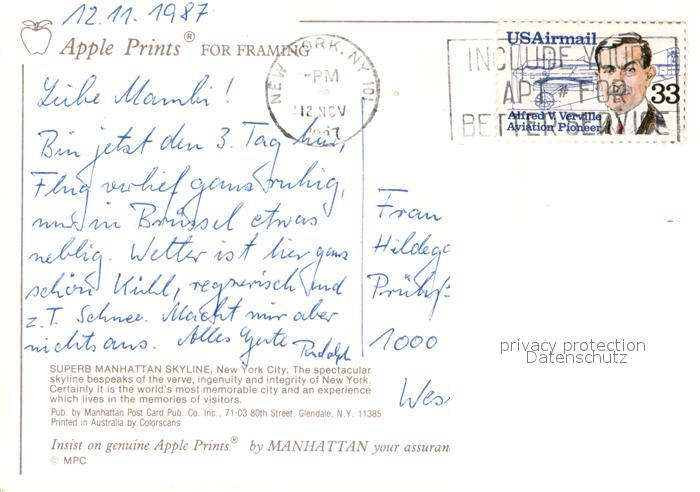 12.11.1987
Apple Prints® FOR FRAMING
NEW YORK, NY 101
PM
12 NOV
1987
INCLUDE YOUR
APT # FOR
BETTER SERVICE
USAirmail
33
Alfred V. Verville
Aviation Pioneer
Liebe Mambi!
Bin jetzt den 3. Tag hier,
Flug verlief ganz ruhig,
nur in Brüssel etwas
neblig. Wetter ist hier ganz
schön Kühl, regnerisch und
z.T. Schnee. Macht mir aber
nichts aus. Alles Gute Rudolph
Frau
Hildega
1000
Wes
privacy protection
Datenschutz
SUPERB MANHATTAN SKYLINE, New York City. The spectacular
skyline bespeaks of the verve, ingenuity and integrity of New York.
Certainly it is the world's most memorable city and an experience
which lives in the memories of visitors.
Pub. by Manhattan Post Card Pub. Co. Inc., 71-03 80th Street, Glendale, N.Y. 11385
Printed in Australia by Colorscans
Insist on genuine Apple Prints® by MANHATTAN your assuran
© MPC